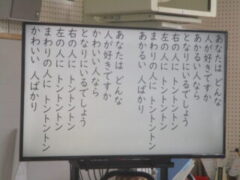 あなたは どんな
人が好きですか
あかるい人なら
となりにいるでしょう
右の人に トントントン
左の人に トントントン
まわりの人に トントントン
あかるい 人ばかり
あなたは どんな
人が好きですか
かわいい人なら
となりにいるでしょう
右の人に トントントン
左の人に トントントン
まわりの人に トントントン
かわいい 人ばかり